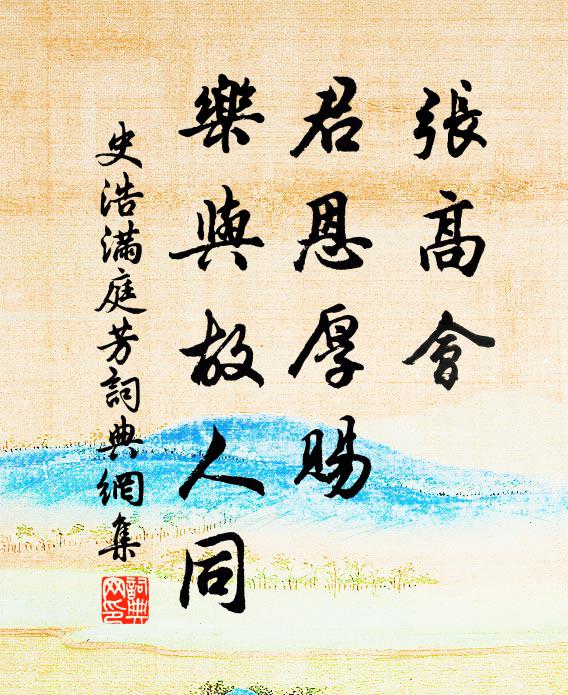 張高會
君恩厚賜
樂與故人同
史浩滿庭芳詞典網集
詞典網印